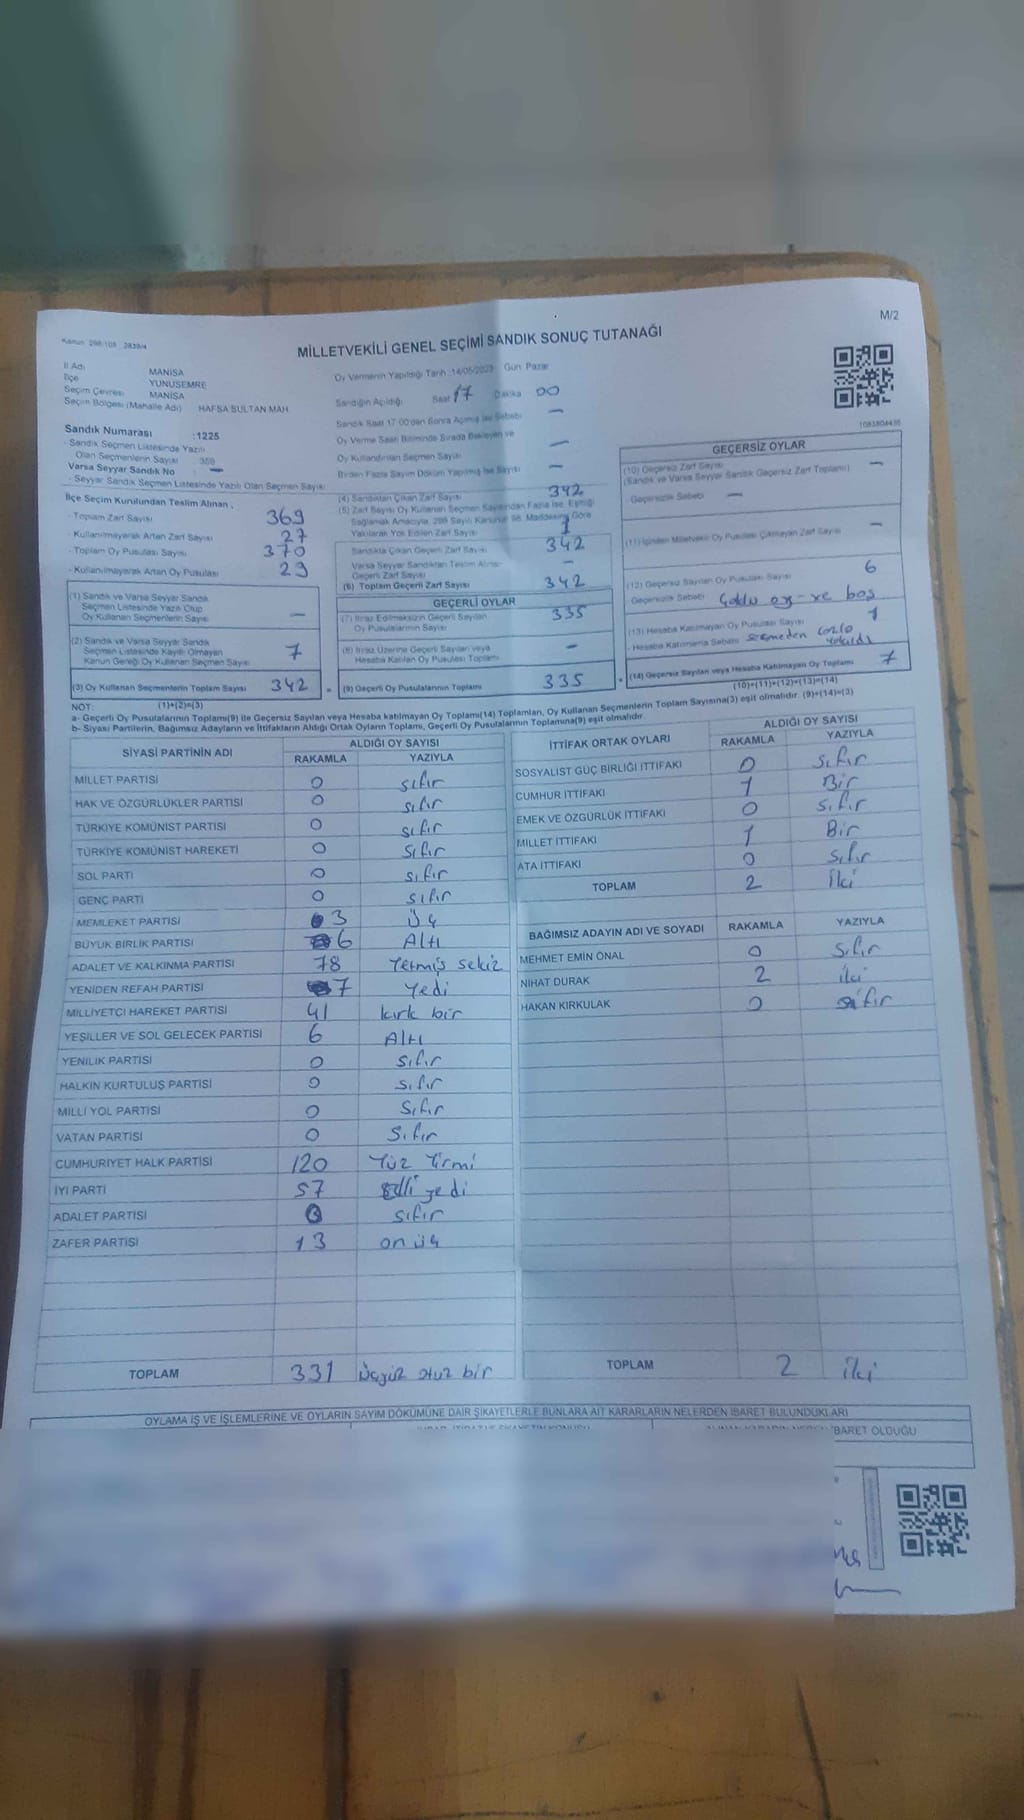 M/2
MİLLETVEKİLİ GENEL SEÇİMİ SANDIK SONUÇ TUTANAĞI
İl Adı MANİSA
İlçe YUNUSEMRE
Seçim Çevresi MANİSA
Seçim Bölgesi (Mahalle Adı) HAFSA SULTAN MAH.
Oy Vermenin Yapıldığı Tarih :14/05/2023 Gün: Pazar
Sandığın Açıldığı Saat 17 Dakika 00
Sandık Saat 17:00'den Sonra Açılmış İse Sebebi —
Oy Verme Saati Bitiminde Sırada Bekleyen ve
Oy Kullandırılan Seçmen Sayısı —
Birden Fazla Sayım Döküm Yapılmış İse Sayısı —
Sandık Numarası :1225
- Sandık Seçmen Listesinde Yazılı
Olan Seçmenlerin Sayısı
Varsa Seyyar Sandık No —
- Seyyar Sandık Seçmen Listesinde Yazılı Olan Seçmen Sayısı
İlçe Seçim Kurulundan Teslim Alınan ,
- Toplam Zarf Sayısı 369
- Kullanılmayarak Artan Zarf Sayısı 27
- Toplam Oy Pusulası Sayısı 370
- Kullanılmayarak Artan Oy Pusulası 29
(1) Sandık ve Varsa Seyyar Sandık
Seçmen Listesinde Yazılı Olup
Oy Kullanan Seçmenlerin Sayısı —
(2) Sandık ve Varsa Seyyar Sandık
Seçmen Listesinde Kayıtlı Olmayan
Kanun Gereği Oy Kullanan Seçmen Sayısı 7
(3) Oy Kullanan Seçmenlerin Toplam Sayısı 342
(4) Sandıktan Çıkan Zarf Sayısı 342
(5) Zarf Sayısı Oy Kullanan Seçmen Sayısından Fazla İse, Eşitliği
Sağlamak Amacıyla, 298 Sayılı Kanunun 98. Maddesine Göre
Yakılarak Yok Edilen Zarf Sayısı
Sandıkta Çıkan Geçerli Zarf Sayısı 342
Varsa Seyyar Sandıktan Teslim Alınan
Geçerli Zarf Sayısı —
(6) Toplam Geçerli Zarf Sayısı 342
GEÇERLİ OYLAR
(7) İtiraz Edilmeksizin Geçerli Sayılan
Oy Pusulalarının Sayısı 335
(8) İtiraz Üzerine Geçerli Sayılan veya
Hesaba Katılan Oy Pusulası Toplamı —
= (9) Geçerli Oy Pusulalarının Toplamı 335
GEÇERSİZ OYLAR
(10) Geçersiz Zarf Sayısı —
(Sandık ve Varsa Seyyar Sandık Geçersiz Zarf Toplamı)
Geçersizlik Sebebi —
(11) İçinden Milletvekili Oy Pusulası Çıkmayan Zarf Sayısı —
(12) Geçersiz Sayılan Oy Pusulası Sayısı 6
Geçersizlik Sebebi Çoklu oy - ve boş
(13) Hesaba Katılmayan Oy Pusulası Sayısı 1
- Hesaba Katılmama Sebebi seçmeden
+ (14) Geçersiz Sayılan veya Hesaba Katılmayan Oy Toplamı 7
NOT: (1)+(2)=(3)
(10)+(11)+(12)+(13)=(14)
a- Geçerli Oy Pusulalarının Toplamı(9) ile Geçersiz Sayılan veya Hesaba katılmayan Oy Toplamı(14) Toplamları, Oy Kullanan Seçmenlerin Toplam Sayısına(3) eşit olmalıdır. (9)+(14)=(3)
b- Siyasi Partilerin, Bağımsız Adayların ve İttifakların Aldığı Ortak Oyların Toplamı, Geçerli Oy Pusulalarının Toplamına(9) eşit olmalıdır.
SİYASİ PARTİNİN ADI ALDIĞI OY SAYISI
RAKAMLA YAZIYLA
MİLLET PARTİSİ 0 sıfır
HAK VE ÖZGÜRLÜKLER PARTİSİ 0 sıfır
TÜRKİYE KOMÜNİST PARTİSİ 0 sıfır
TÜRKİYE KOMÜNİST HAREKETİ 0 sıfır
SOL PARTİ 0 sıfır
GENÇ PARTİ 0 sıfır
MEMLEKET PARTİSİ 3 Üç
BÜYÜK BİRLİK PARTİSİ 6 Altı
ADALET VE KALKINMA PARTİSİ 78 Yetmiş sekiz
YENİDEN REFAH PARTİSİ 7 Yedi
MİLLİYETÇİ HAREKET PARTİSİ 41 kırk bir
YEŞİLLER VE SOL GELECEK PARTİSİ 6 Altı
YENİLİK PARTİSİ 0 sıfır
HALKIN KURTULUŞ PARTİSİ 0 sıfır
MİLLİ YOL PARTİSİ 0 Sıfır
VATAN PARTİSİ 0 Sıfır
CUMHURİYET HALK PARTİSİ 120 Yüz Yirmi
İYİ PARTİ 57 elli yedi
ADALET PARTİSİ 0 sıfır
ZAFER PARTİSİ 13 on üç
TOPLAM 331 Üçyüz otuz bir
İTTİFAK ORTAK OYLARI ALDIĞI OY SAYISI
RAKAMLA YAZIYLA
SOSYALİST GÜÇ BİRLİĞİ İTTİFAKI 0 sıfır
CUMHUR İTTİFAKI 1 Bir
EMEK VE ÖZGÜRLÜK İTTİFAKI 0 sıfır
MİLLET İTTİFAKI 1 Bir
ATA İTTİFAKI 0 sıfır
TOPLAM 2 İki
BAĞIMSIZ ADAYIN ADI VE SOYADI RAKAMLA YAZIYLA
MEHMET EMİN ÖNAL 0 sıfır
NİHAT DURAK 2 iki
HAKAN KIRKULAK 0 sıfır
TOPLAM 2 İki
OYLAMA İŞ VE İŞLEMLERİNE VE OYLARIN SAYIM DÖKÜMÜNE DAİR ŞİKAYETLERLE BUNLARA AİT KARARLARIN NELERDEN İBARET BULUNDUKLARI
İBARET OLDUĞU